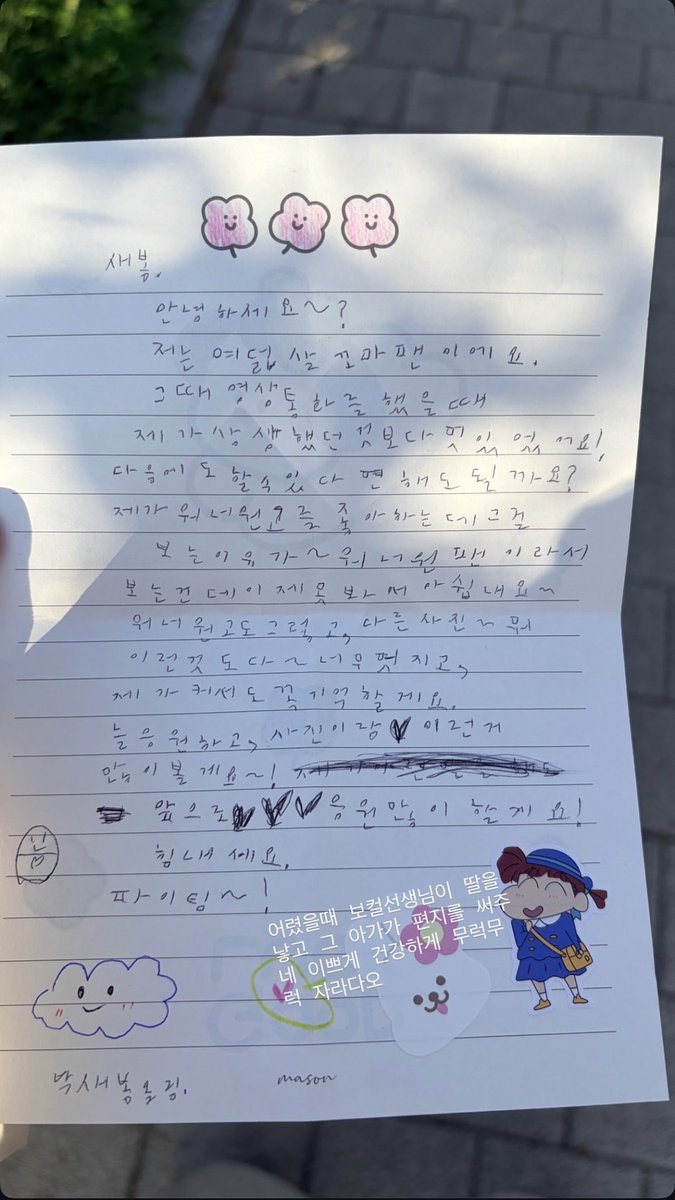 새봄.
안녕하세요~?
저는 여덟 살 꼬마팬이에요.
그때 영상통화를 했을때
제가 상상했던 것보다 멋있었어요!
다음에도 할수있다면 해도될까요?
제가 워너원고를 좋아하는데 그걸
보는이유가~ 워너원팬이라서
보는건데 이제못봐서 아쉽내요~
워너원고도그렇고, 다른사진~ 뭐
이런것도다~ 너무멋지고,
제가커서도 꼭기억할게요.
늘응원하고, 사진이랑♥이런거
많이볼게요~!
앞으로♥♥♥응원많이할게요!
힘내세요.
파이팅~!
어렸을때 보컬선생님이 딸을
낳고 그 아가가 편지를 써주
네 이쁘게 건강하게 무럭무
럭 자라다오
박새봄올림.
mason